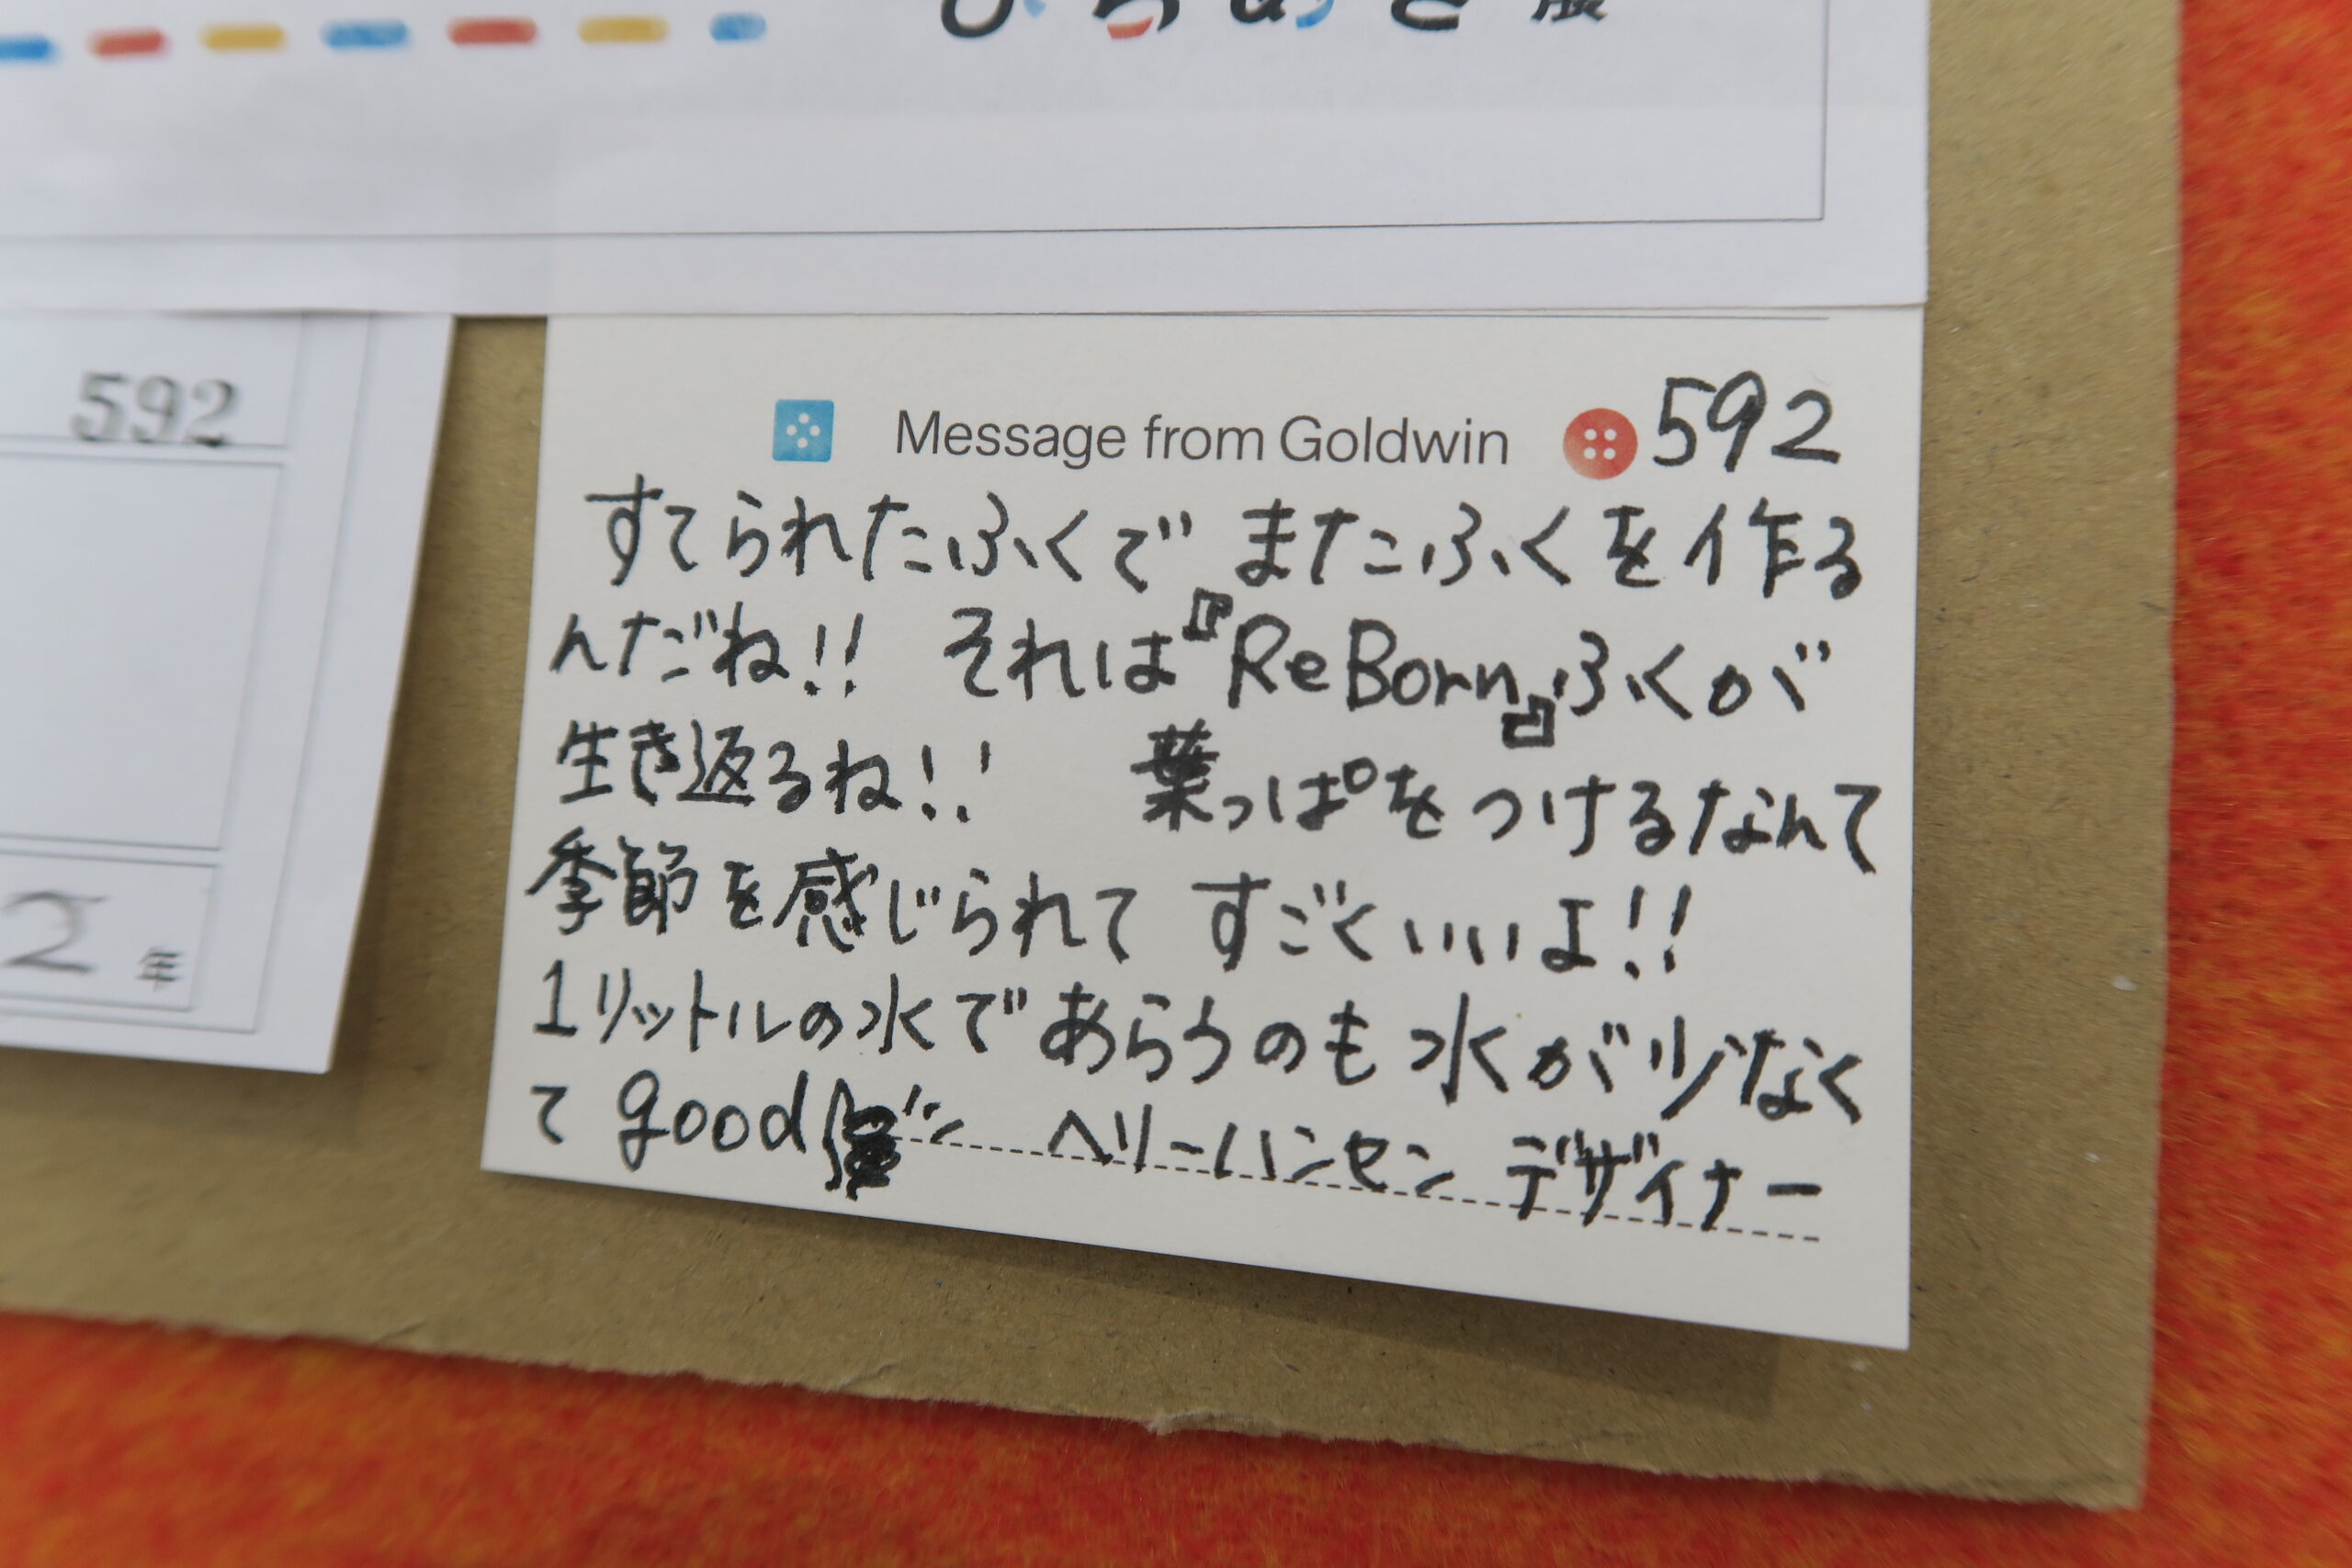 展
592
2年
Message from Goldwin 592
すてられたふくで またふくを作る
んだね!! それは『ReBorn』ふくが
生き返るね!! 葉っぱをつけるなんて
季節を感じられて すごくいいよ!!
1リットルの水であらうのも水が少なく
て good ヘリーハンセン デザイナー